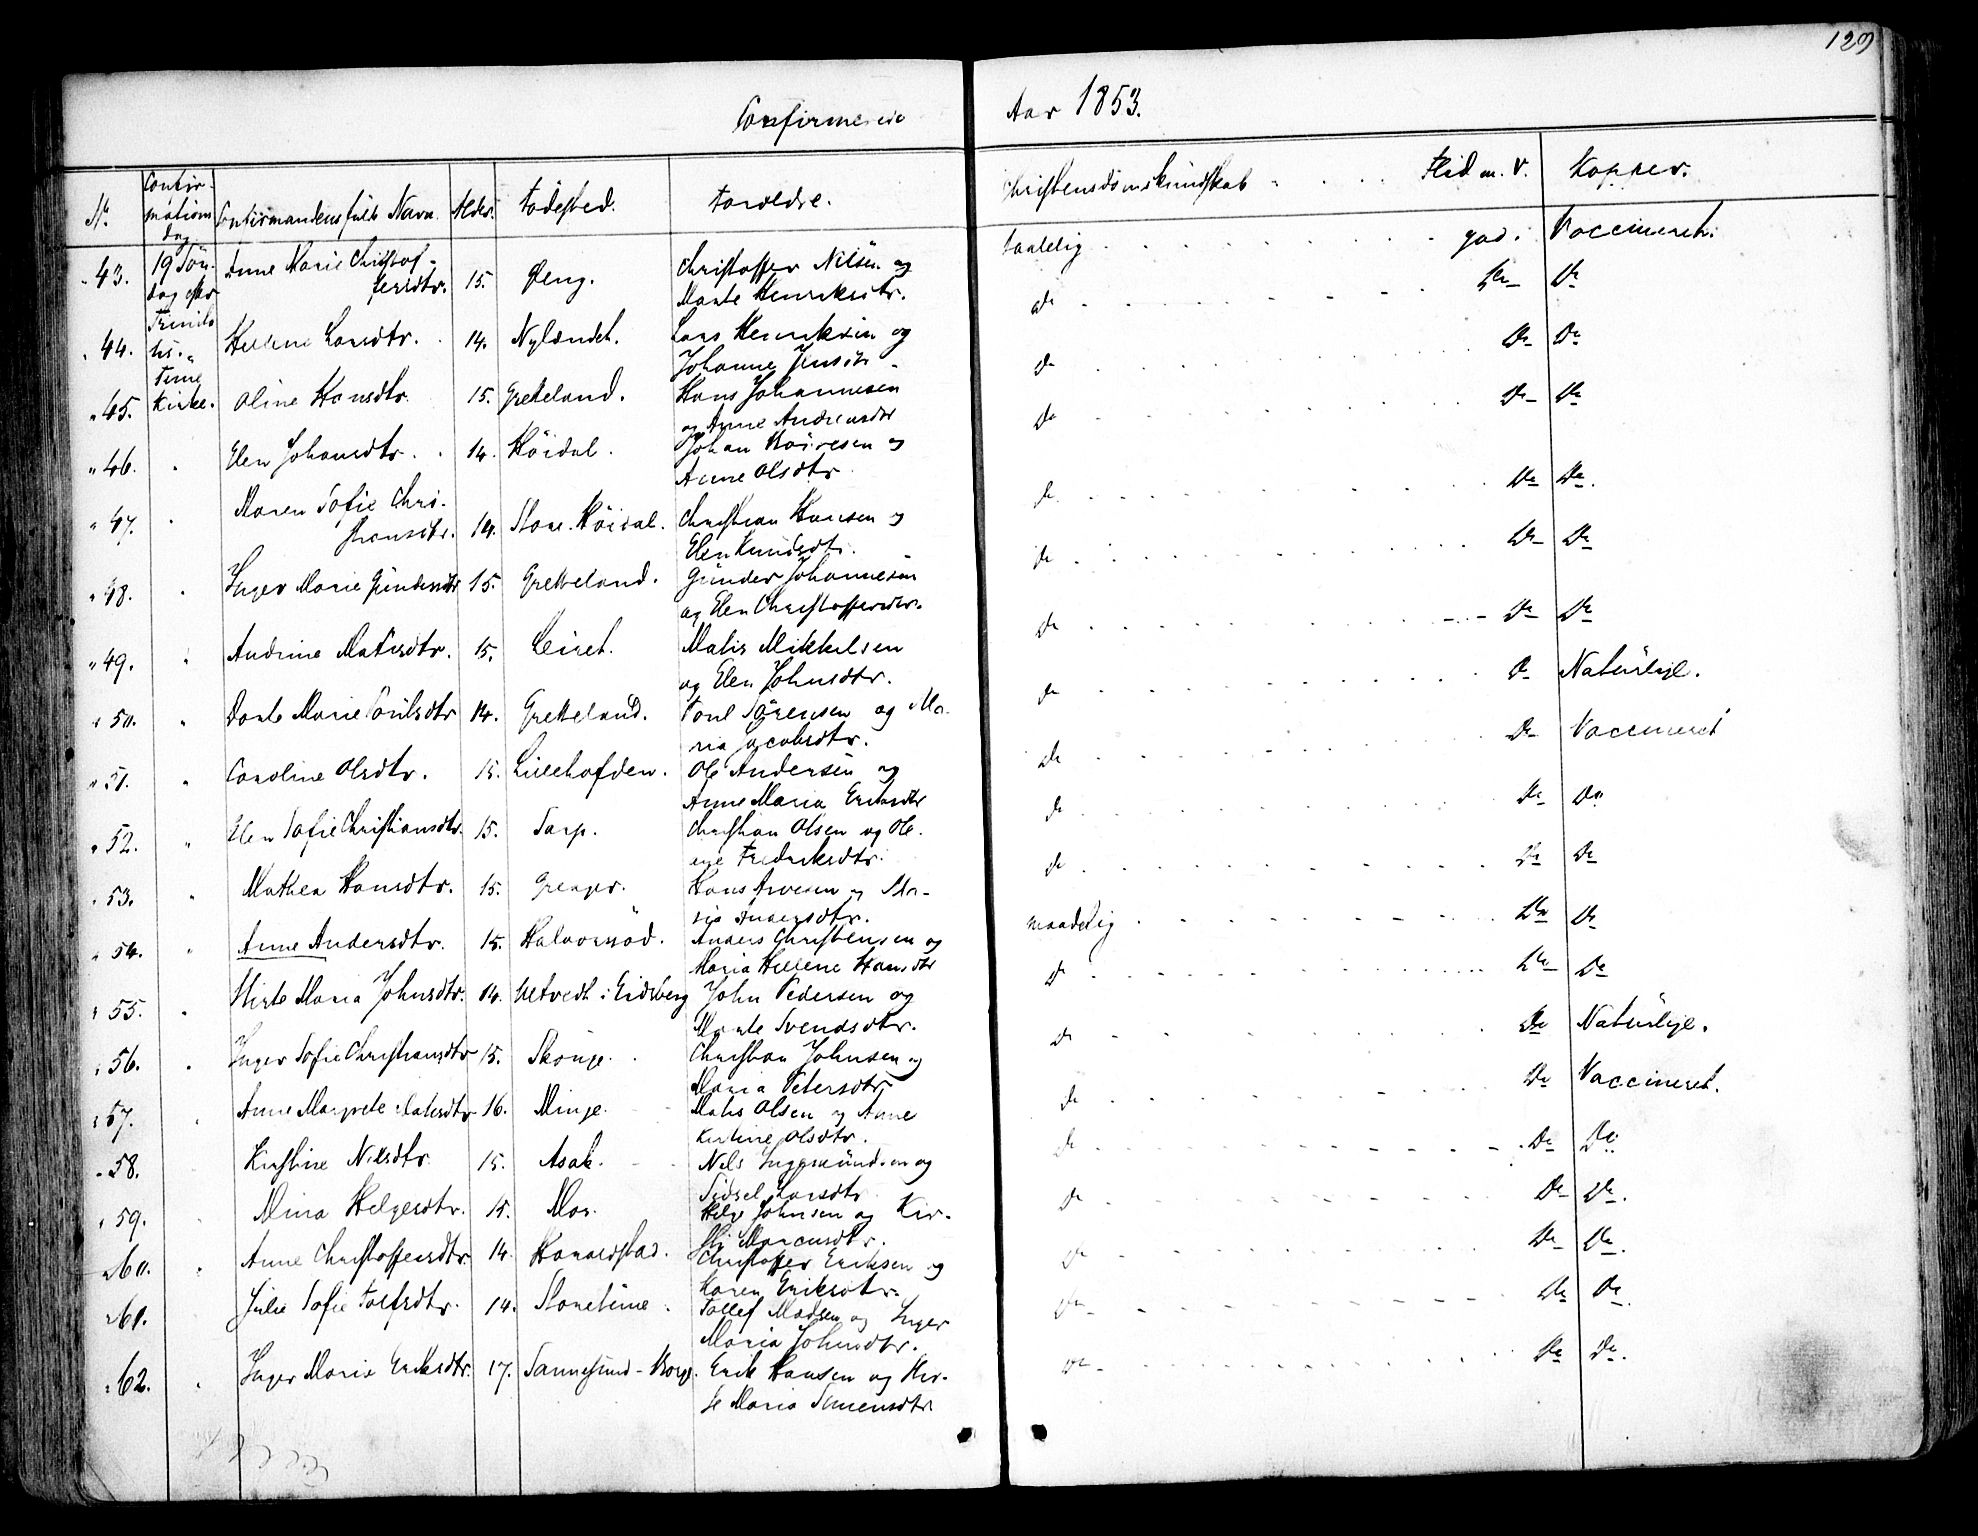 129
Confirmerede
Aar 1853.
No.
Confirmations dag
Confirmandens fulde Navn
Alder.
Födested.
Forældre.
Christendomskundskab . . . . Flid m. V.
Kopper.
43. 19 Sön- Anne Marie Christof- 15. Ceng. Christoffer Nilsen og taalelig god. Vaccineret.
dag efter fersdtr. Marte Henriksdtr.
Trinita
44. tis. Hellene Larsdtr. 14. Nylændet. Lars Henriksen og Do Do Do
Johanne Jensdtr
Tune
45. Kirke. Oline Hansdtr. 15. Gretteland. Hans Johannesen Do Do Do
og Anne Andreasdtr
46. " Elen Johansdtr. 14. Höidal. Johan Borresen og Do Do Do
Anne Olsdtr
47. " Maren Sofie Chri- 14. Store-Höidal. Christian Hansen og Do Do Do.
stiansdtr. Elen Knudsdtr.
48. " Inger Marie Gundersdtr 15. Gretteland. Günder Johannesen Do Do Do
og Elen Christoffersdtr.
49. " Andrine Matisdtr. 15. Leiret. Matis Mikkelsen Do Do Do
og Elen Johnsdtr.
50. " Dorte Marie Poulsdtr 14. Gretteland. Poul Sörensen og Ma- Do Do Naturlige.
ria Jacobsdtr.
51. " Caroline Olsdtr. 15. Lillehofden. Ole Andersen og Do Do Vaccineret
Anne Maria Eriksdtr
52. " Elen Sofie Christiansdtr. 15. Sarp. Christian Olsen og Ole- Do Do Do
ene Fredriksdtr.
53. " Mathea Hansdtr. 15. Greager. Hans Arvesen og Ma- Do Do Do
ria Andersdtr.
54. " Anne Andersdtr. 15. Halvorsröd. Anders Christensen og maadelig Do Do
Maria Hellene Hansdtr
55. " Mirte Maria Johnsdtr. 14. Ultvedt i Eidsberg John Pedersen og Do Do Do
Marte Svendsdtr.
56. " Inger Sofie Christiansdtr 15. Skonge. Christian Johnsen og Do Do Naturlige.
Maria Petersdtr
57. " Anne Margrete Matisdtr 16. Minge. Matis Olsen og Anne Do Do Vaccineret.
Kirstine Olsdtr.
58. Kirstine Nilsdtr. 15. Asak. Nels Inggmündsen og Do Do Do
Sidsel Larsdtr
59. Mina Helgesdtr. 15. Moe. Helge Johnsen og Kir- Do Do Do.
sti Marcusdtr.
60. " Anne Christoffersdtr. 14. Haraldstad. Christoffer Eriksen og Do Do Do.
Karen Eriksdtr.
61. Julie Sofie Tollefsdtr. 14. Storetune. Tollef Madsen og Inger Do Do Do.
Maria Johnsdtr.
62. " Inger Marie Eriksdtr. 17. Sannesund-Borge. Erik Hansen og Kir- Do Do Do.
ste Maria Simensdtr